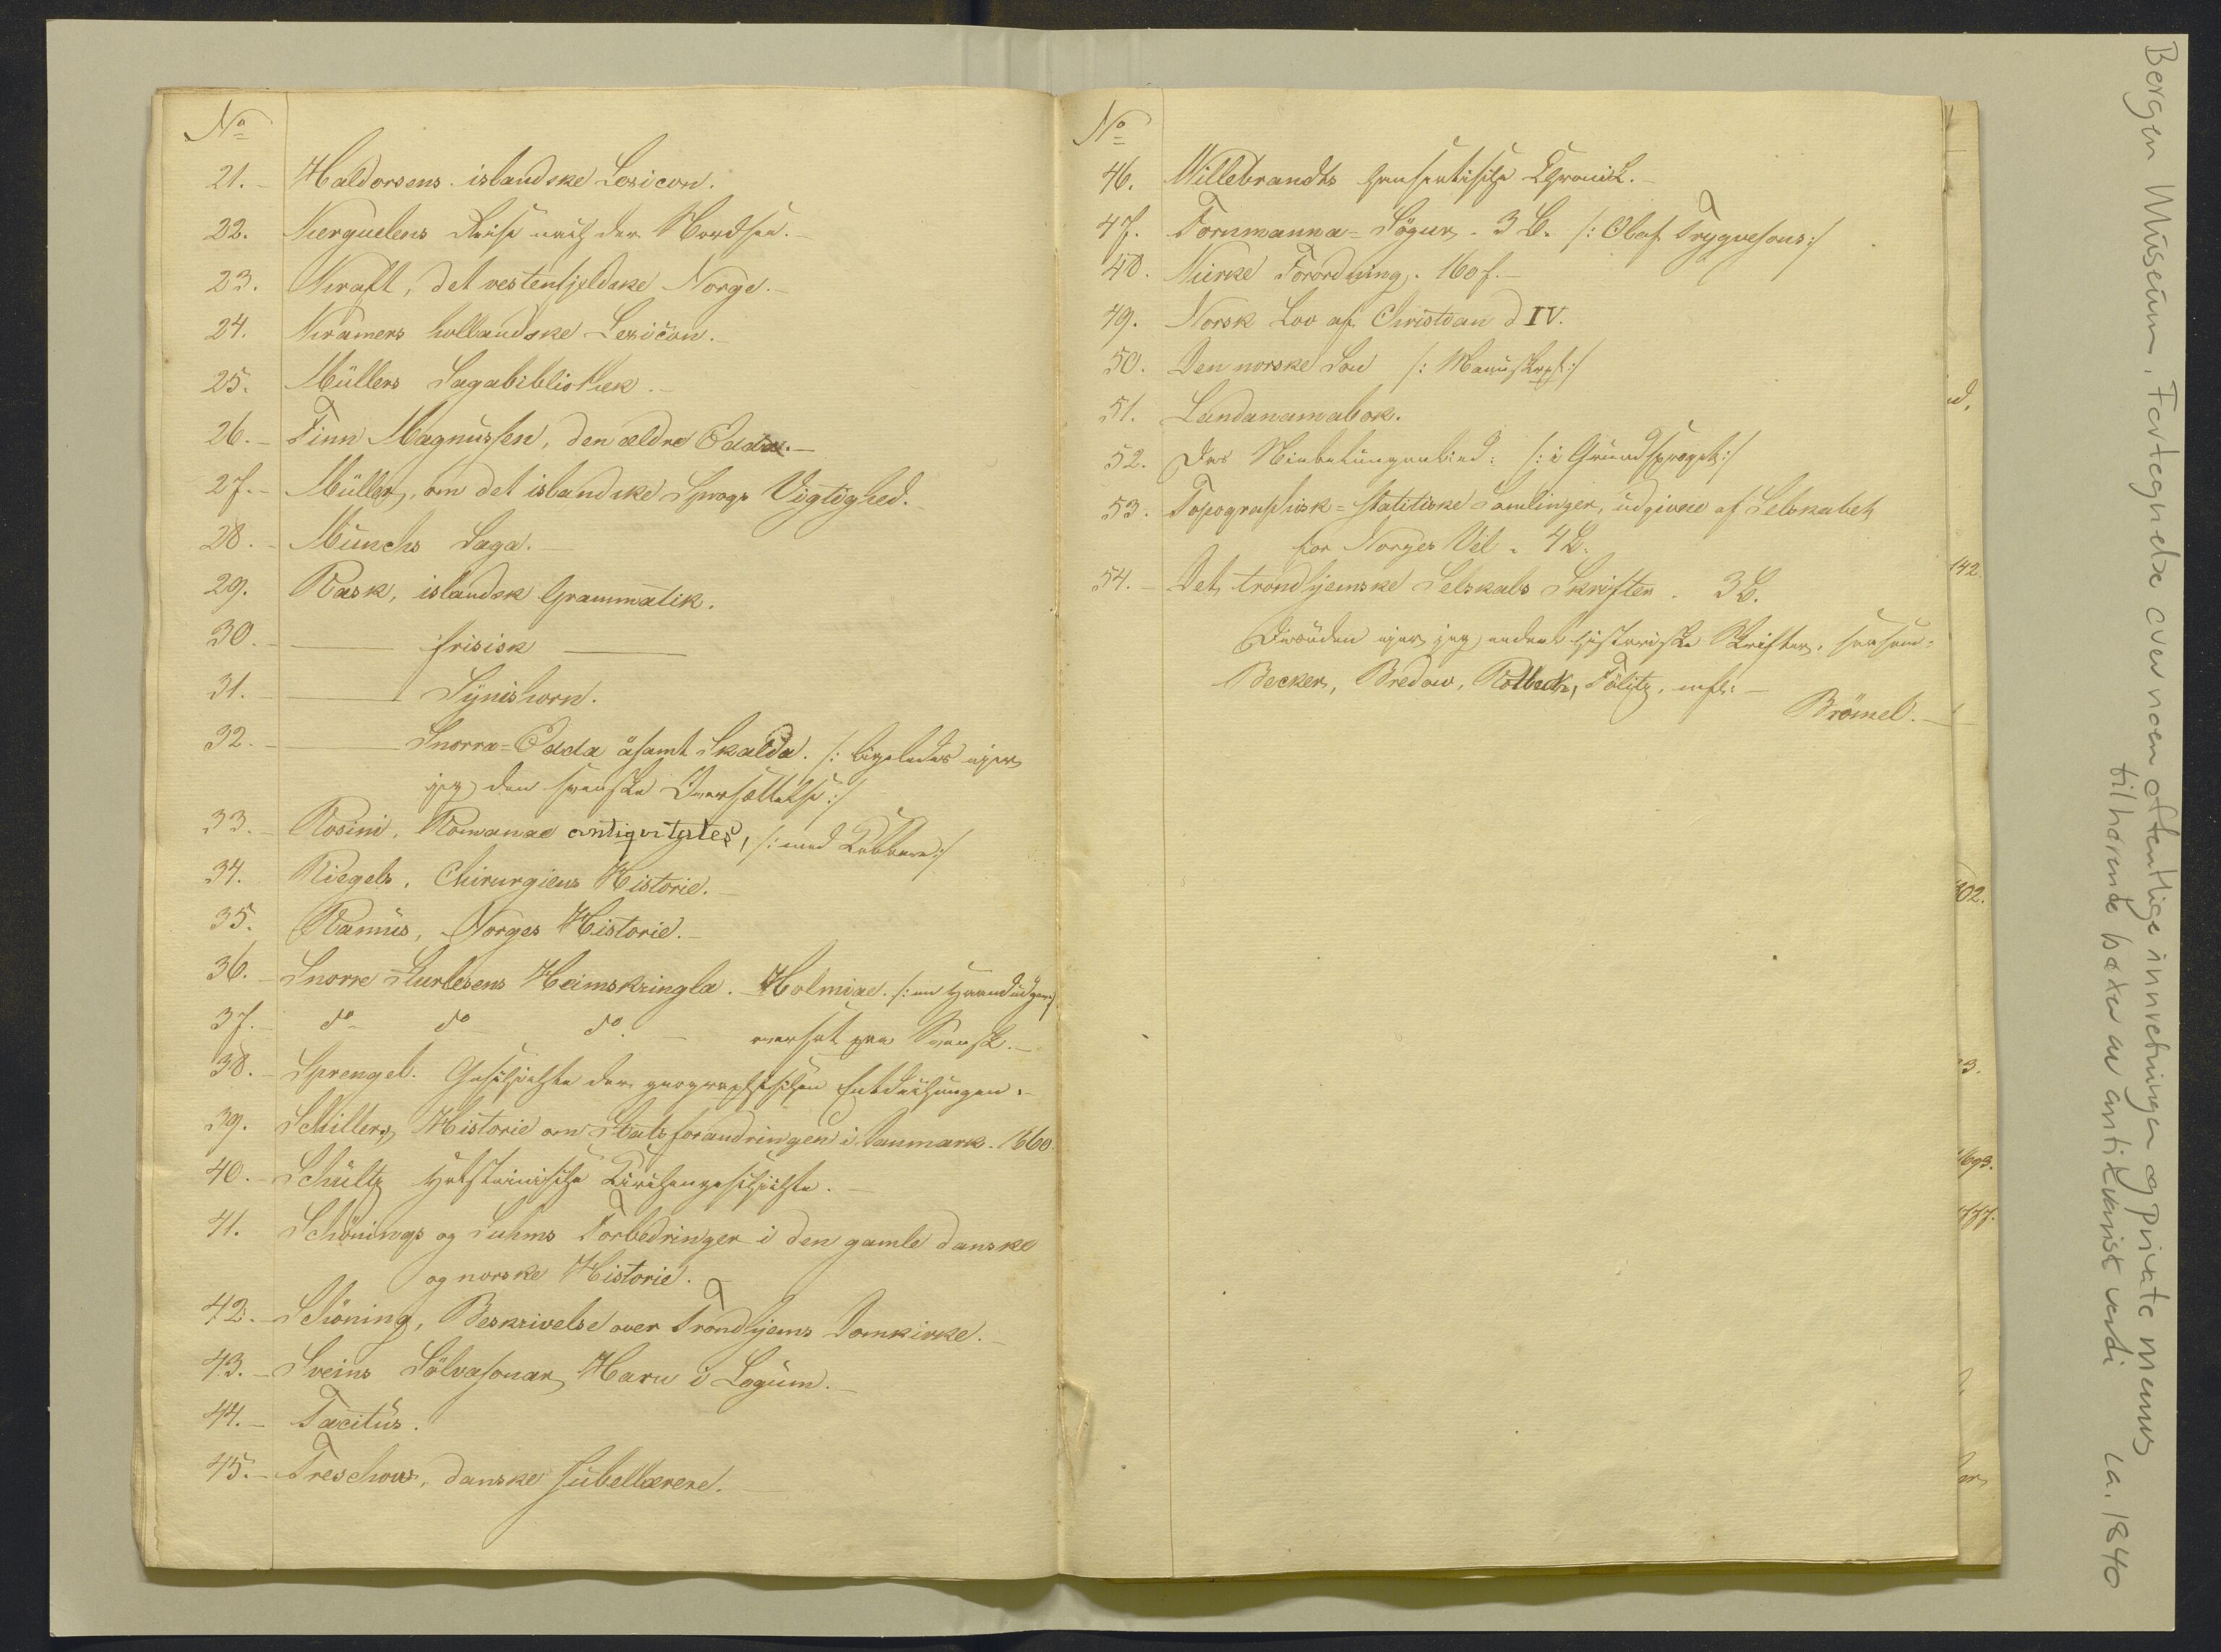 No
21. - Haldorsens islandske Lexicon.
22. Kerguelens Reise nach der Nordsee. -
23. Kraft, det vestenfjeldske Norge. -
24. Kramers hollandske Lexicon. -
25. Müllers Sagabibliothek. -
26. - Finn Magnussen, den ældre Edda. -
27. - Müller, om det islandske Sprogs Vigtighed. -
28. - Munchs Saga. -
29. Rask, islandsk Grammatik.
30. - — frisisk —
31. - — Synishorn.
32. - — Snorra-Edda ásamt Skalda. /: ligeledes ejer
jeg den svenske Oversættelse :/
33. - Rosini, Romanae antiqvitates, /: med Kobbere :/
34. Riegels, Chirurgiens Historie. -
35. Ramus, Norges Historie. -
36. - Snorre Sturlesens Heimskringla. Holmiae. /: en Haandudgave :/
37. - do do do. - oversat paa Svensk. -
38. - Sprengel. Geschichte der geographischen Entdeckungen. -
39. Schillers, Historie om Statsforandringen i Danmark. 1660.
40. - Schultz Holsteinische Kirchengeschichte. -
41. Schönings og Suhms Forbedringer i den gamle danske
og norske Historie.
42. - Schöning, Beskrivelse over Trondhjems Domkirke. -
43. - Sveins Sölvasonar, Haru i Logum. -
44. - Tacitus.
45. - Treschows, danske Jubellærere. -
No
46. Willebrandts Hanseatische Chronik. -
47. Fornmanna-Sögur. 3 B. /: Olaf Trygvesons :/
48. Kirke Forordning. 1607. -
49. Norsk Lov af Christian d IV.
50. Den norske Lov /: Manuskrpt :/
51. Landanamabok.
52. Das Niebelungenlied. /: i Grundsproget :/
53. Topographisk-statitiske Samlinger, udgivne af Selskabet
for Norges Vel. 4 B.
54. - Det trondhjemske Selskabs Skrifter. 3 B.
Desuden ejer jeg andre historiske Skrifter, saasom:
Becker, Bredow, Pölitz, mfl: -
Brömel. -
d.
142.
02.
3.
1693.
777.
Bergen Museum. Fortegnelse over noen offentlige innretninger og private menns
tilhørende bøker av antikvarisk verdi ca. 1840